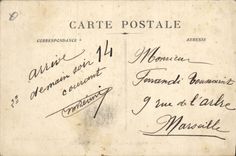 CARTE POSTALE
CORRESPONDANCE
ADRESSE
arrive
demain soir 14
courant
Monsieur
Toussaint
9 rue de l'arbre
Marseille